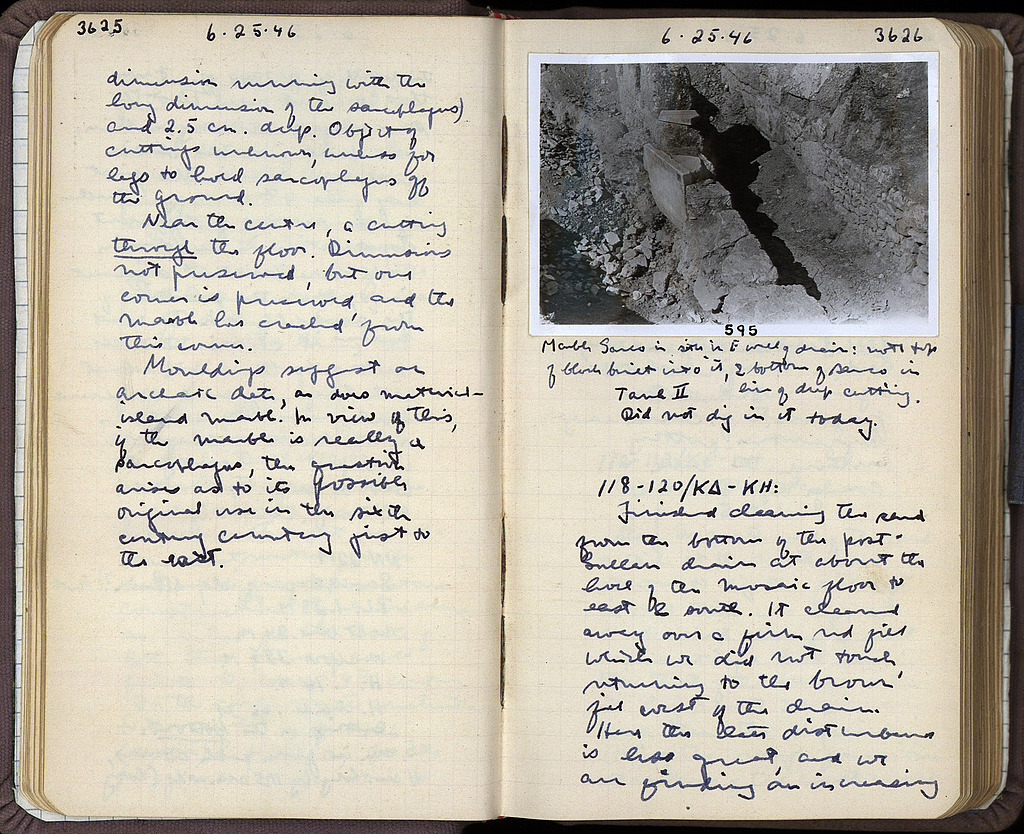 3625
6·25·46
dimension running with the
long dimension of the sarcophagus)
and 2.5 cm. deep. Object of
cuttings unknown, unless for
legs to hold sarcophagus off
the ground.
Near the centre, a cutting
through the floor. Dimensions
not preserved, but one
corner is preserved and the
marble has cracked from
this corner.
Mouldings suggest an
archaic date, as does material-
island marble. In view of this,
if the marble is really a
sarcophagus, the question
arises as to its possible
original use in the sixth
century cemetery just to
the east.
6·25·46
3626
595
Marble Sarco in situ in E wall of drain: note top
of block built into it, & bottom of sarco in
Tank II line of deep cutting.
Did not dig in it today.
118-120/ΚΔ-ΚΗ:
Finished cleaning the sand
from the bottom of the post-
Sullan drain at about the
level of the mosaic floor to
east & south. It cleaned
away over a firm red fill
which we did not touch,
returning to the brown
fill west of the drain.
Here the late disturbance
is less great, and we
are finding an increasing